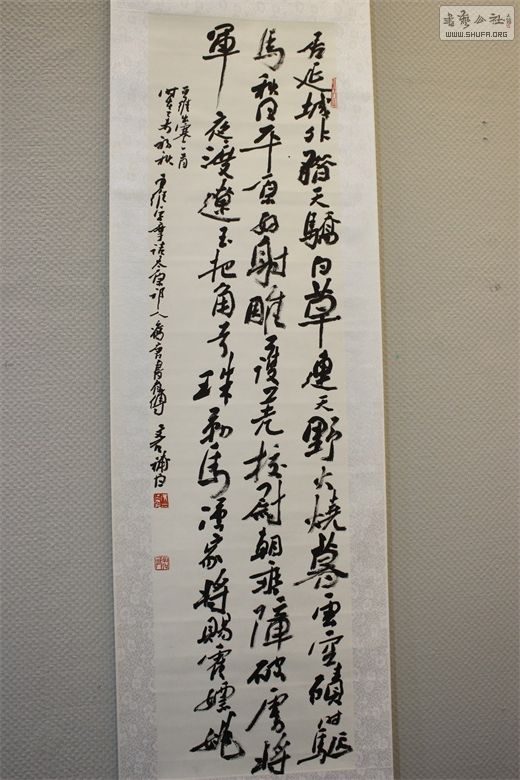 居延城外猎天驕白草連天野火燒暮雲空磧时驅
馬秋日平原好射雕護羌校尉朝乘障破虜將
軍夜渡遼玉把角弓珠勒馬漢家將賜霍嫖姚
王維出塞一首
秋王維字摩诘太原祁人
書藝公社
WWW.SHUFA.ORG